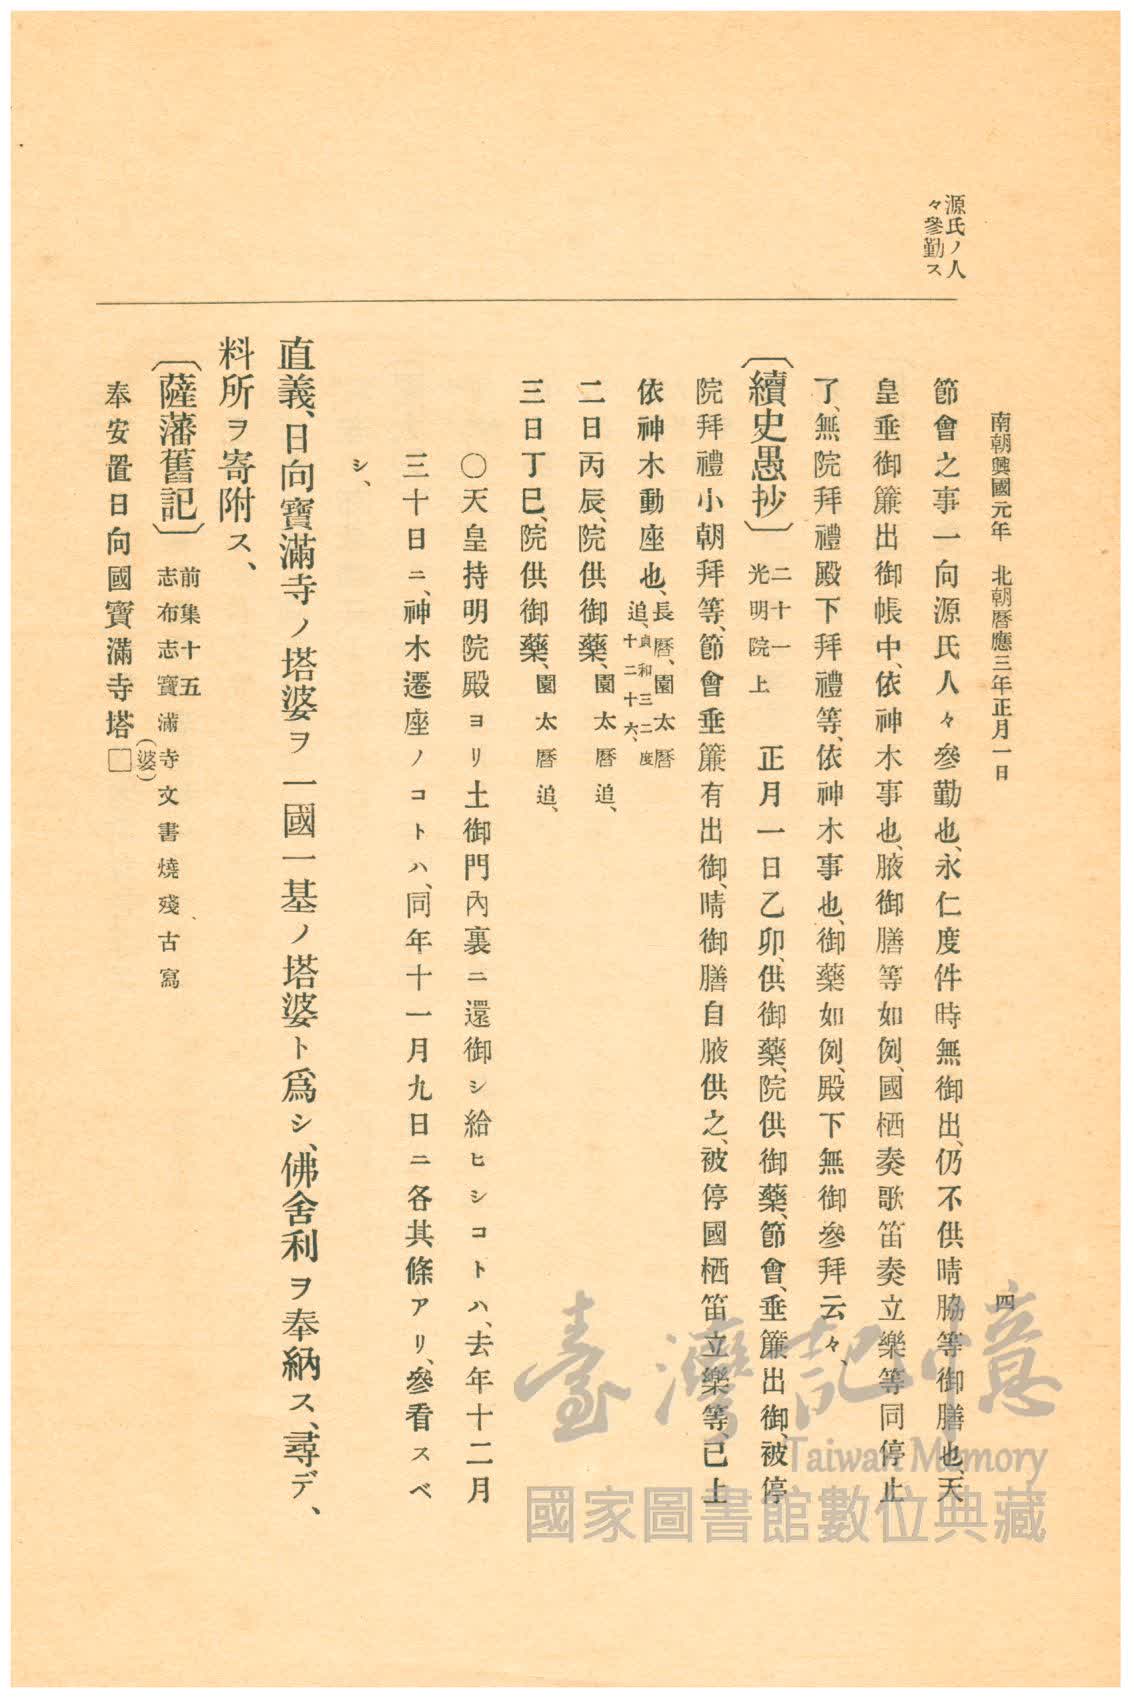 南朝興國元年 北朝曆應三年正月一日
四
源氏ノ人
々參勤ス
節會之事一向源氏人々參勤也、永仁度件時無御出、仍不供晴脇等御膳也、天
皇垂御簾出御帳中、依神木事也、腋御膳等如例、國栖奏歌笛奏立樂等同停止
了、無院拜禮殿下拜禮等、依神木事也、御藥如例、殿下無御參拜云々、
〔續史愚抄〕 二十一
光明院上
正月一日乙卯、供御藥、院供御藥、節會、垂簾出御、被停
院拜禮小朝拜等、節會垂簾有出御、晴御膳自腋供之、被停國栖笛立樂等、已上
依神木動座也、
長曆、園太曆
追、貞和三二度
十二十六、
二日丙辰、院供御藥、園太曆追、
三日丁巳、院供御藥、園太曆追、
〇天皇持明院殿ヨリ土御門內裏ニ還御シ給ヒシコトハ、去年十二月
三十日ニ、神木遷座ノコトハ、同年十一月九日ニ各其條アリ、參看スベ
シ、
直義、日向寶滿寺ノ塔婆ヲ一國一基ノ塔婆ト爲シ、佛舍利ヲ奉納ス、尋デ、
料所ヲ寄附ス、
〔薩藩舊記〕 前集十五
志布志寶滿寺文書燒殘古寫
奉安置日向國寶滿寺塔□(婆)
臺灣記憶
Taiwan Memory
國家圖書館數位典藏